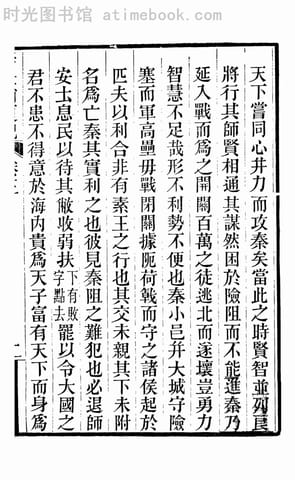 时光图书馆 atimebook.com
天下嘗同心并力而攻秦矣當此之時賢智並列良
將行其師賢相通其謀然困於險阻而不能進秦乃
延入戰而爲之開關百萬之徒逃北而遂壞豈勇力
智慧不足哉形不利勢不便也秦小邑并大城守險
塞而軍高壘毋戰閉關據阨荷戟而守之諸侯起於
匹夫以利合非有素王之行也其交未親其下未附
名爲亡秦其實利之也彼見秦阻之難犯也必退師
安士息民以待其敝收弱扶下有敗字點去罷以令大國之
君不患不得意於海內貴爲天子富有天下而身爲